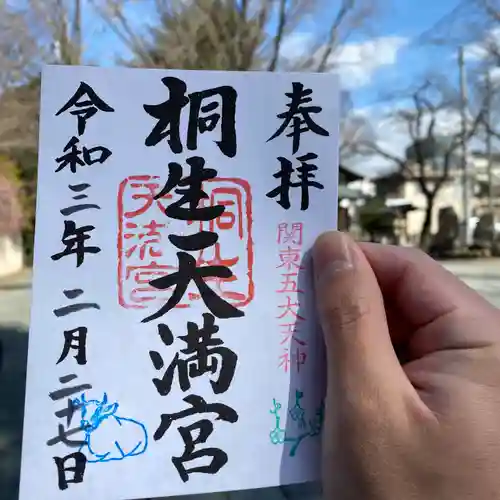 奉拝
関東五大天神
桐生天満宮
桐生
天満宮
令和三年二月二十七日